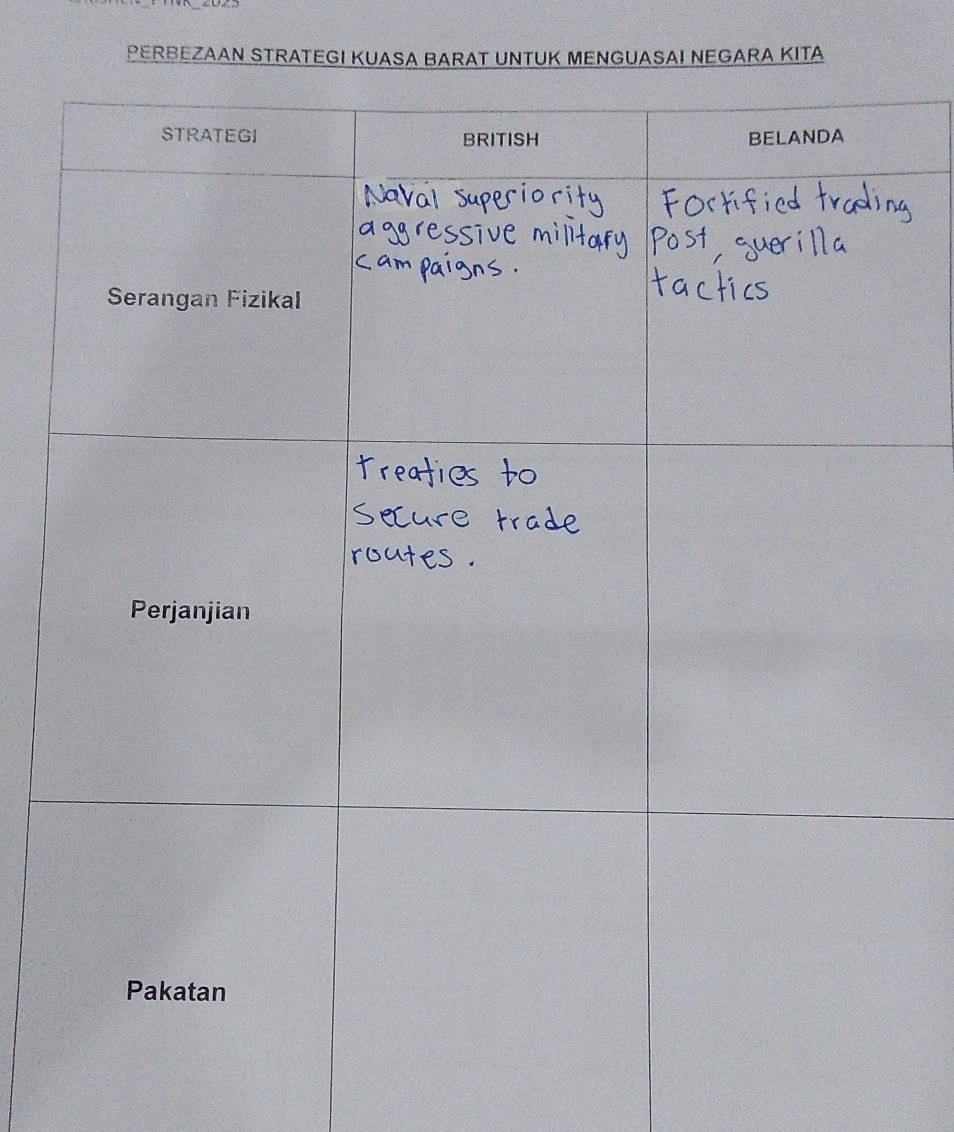 PERBEZAAN STRATEGI KUASA BARAT UNTUK MENGUASAI NEGARA KITA
STRATEGI BRITISH BELANDA
Serangan Fizikal
Naval superiority
aggressive military
campaigns.
Fortified trading
Post, guerilla
tactics
Perjanjian
Treaties to
secure trade
routes.
Pakatan